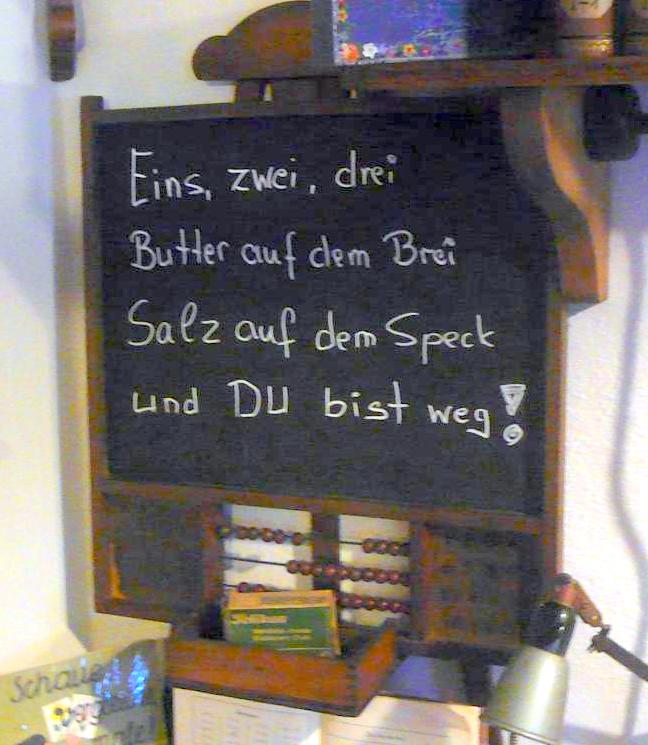 Eins, zwei, drei
Butter auf dem Brei
Salz auf dem Speck
und DU bist weg!
Schau